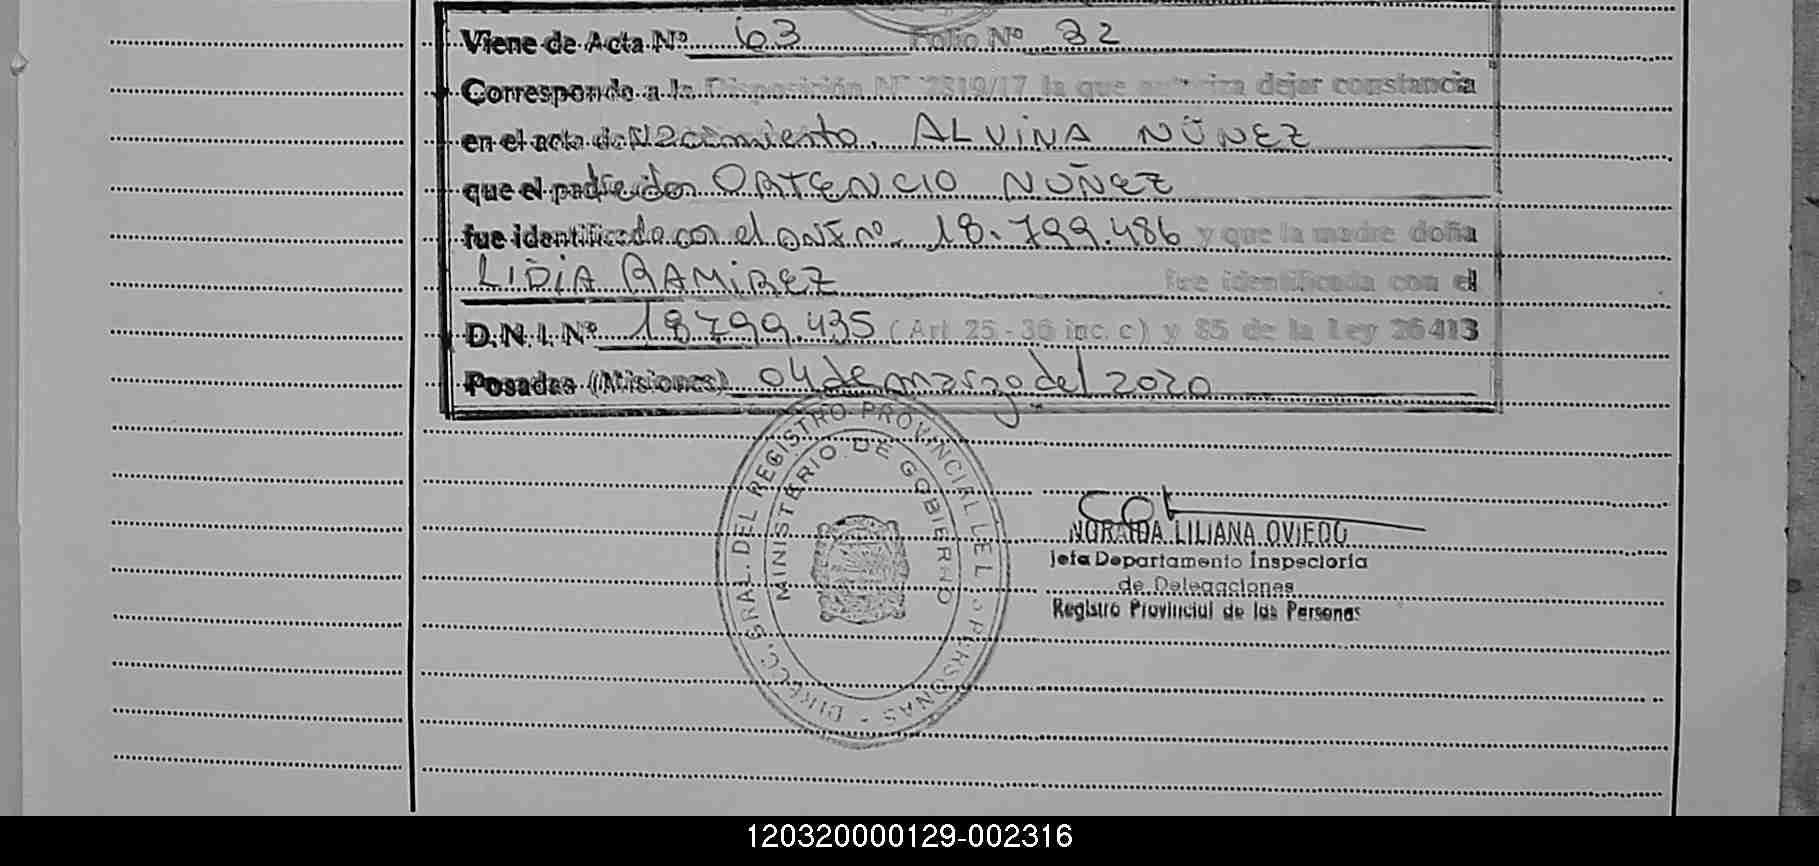 Viene de Acta Nº 63 Folio Nº 32
Corresponde a la Disposición Nº 2819/17 la que autoriza dejar constancia
en el acta de Nacimiento. ALVINA NÚÑEZ
que el padre don ORTENCIO NUÑEZ
fue identificado con el DNI nº 18.799.486 y que la madre doña
LIDIA RAMIREZ fue identificada con el
D.N.I. Nº 18799.435 (Art 25 - 36 inc. c) y 85 de la Ley 26413
Posadas (Misiones) 04 de marzo del 2020
DIRECC. GRAL. DEL REGISTRO PROVINCIAL DE PERSONAS
MINISTERIO DE GOBIERNO
LILIANA OVIEDO
Jefa Departamento Inspectoría
de Delegaciones
Registro Provincial de las Personas
120320000129-002316